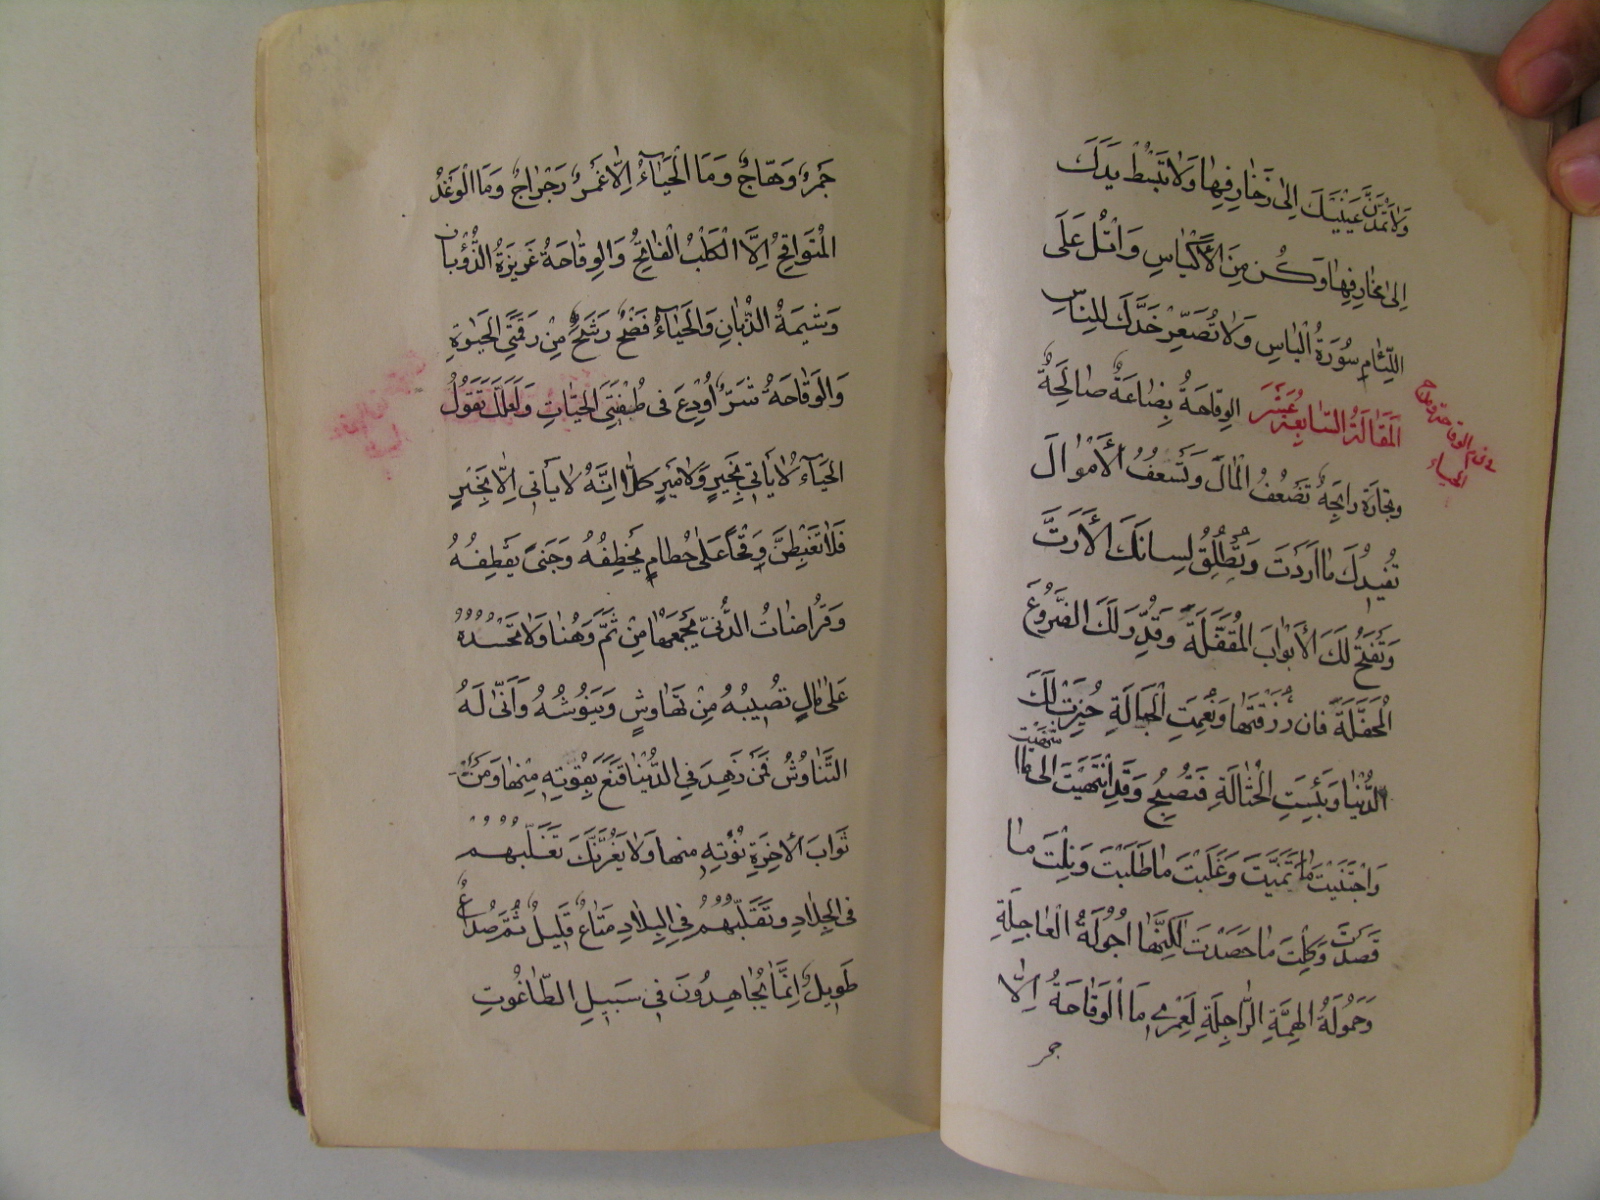 وَلَا تَمُدَّنَّ عَيْنَيْكَ اِلٰى زَخَارِفِهَا وَلَا تَبْسُطْ يَدَكَ
اِلٰى مَخَارِفِهَا وَكُنْ مِنَ الْاَكْيَاسِ وَاتْلُ عَلَى
اللِّئَامِ سُورَةَ الْيَاسِ وَلَا تُصَعِّرْ خَدَّكَ لِلنَّاسِ
اَلْمَقَالَةُ السَّابِعَةُ عَشَرَ الوِقَاحَةُ بِضَاعَةٌ صَالِحَةٌ
فى ذم الوقاحة ومدح
الحياء
وتِجَارَة رَابِحَةٌ تُضَعِّفُ الْمَالَ وَتُسْعِفُ الْاَمْوَالَ
تُفِيدُكَ مَا اَرَدْتَ وَتُطْلِقُ لِسَانَكَ الْاَرَتَّ
وَتَفْتَحُ لَكَ الْاَبْوَابَ الْمُقَفَّلَةَ وَتُدِرُّ لَكَ الضُّرُوعَ
الْمُحَفَّلَةَ فَاِن رُزِقْتَهَا وَنِعْمَتِ الْحِبَالَةِ حُيِّزَتْ لَكَ
الدُّنْيَا وَبِئْسَتِ الْحُثَالَةِ فَتُصْبِحُ وَقَدِ انْتَهَيْتَ اِلٰى مَا
وَاجْتَنَيْتَ مَا تَمَنَّيْتَ وَغَلَبْتَ مَا طَلَبْتَ وَنِلْتَ مَا
قَصَدْتَ وَكِلْتَ مَا حَصَدْتَ لٰكِنَّهَا اُجُولَةُ الْعَاجِلَةِ
وَحَمُولَةُ الْهِمَّةِ الرَّاجِلَةِ لَعَمْرِى مَا الْوَقَاحَةُ اِلَّا
جمر
جَمْرٌ وَهَّاجٌ وَمَا الْحَيَآءُ اِلَّا غَمْرٌ رَجْرَاجٌ وَمَا الْوَغْدُ
الْمُتَوَاقِحُ اِلَّا الْكَلْبُ الْفَائِحُ وَالْوِقَاحَةُ غَرِيزَةُ الذُّؤْبَانِ
وَشِيمَةُ الذِّبَّانِ وَالْحَيَآءُ فَضْحٌ رَشَحَ مِنْ رَقْمَتَىِ الْحَيٰوةِ
وَالْوَقَاحَةُ شَرٌّ اُودِعَ فِى طُفْيَتَىِ الْحَيَّاتِ وَلَعَلَّكَ تَقُولُ
الْحَيَآءُ لَا يَأْتِى بِخَيْرٍ وَلَا مَيْرٍ كَلَّا اِنَّهُ لَا يَأْتِى اِلَّا بِخَيْرٍ
فَلَا تَغْبِطَنَّ وَقِحًا عَلٰى حُطَامٍ يَخْطِفُهُ وَجَنًى يَقْطِفُهُ
وَقُرَاضَاتُ الدُّنْيَا يَجْمَعُهَا مِنْ ثَمَّ وَهُنَا وَلَا تَحْسُدُهُ
عَلٰى مَالٍ تُصِيبُهُ مِنْ تَهَاوُشٍ وَيَنُوشُهُ وَاَنّٰى لَهُ
التَّنَاوُشُ فَمَنْ زَهِدَ فِى الدُّنْيَا قَنَعَ بِقُوتِهِ مِنْهَا وَمَنْ
ثَوَابَ الْاٰخِرَةِ نُؤْتِهِ مِنْهَا وَلَا يَغُرَّنَّكَ تَغَلُّبُهُمْ
فِى الْجِلَادِ وَتَقَلُّبُهُمْ فِى الْبِلَادِ مَتَاعٌ قَلِيلٌ ثُمَّ صُدَاعٌ
طَوِيلٌ اِنَّمَا يُجَاهِدُونَ فِى سَبِيلِ الطَّاغُوتِ